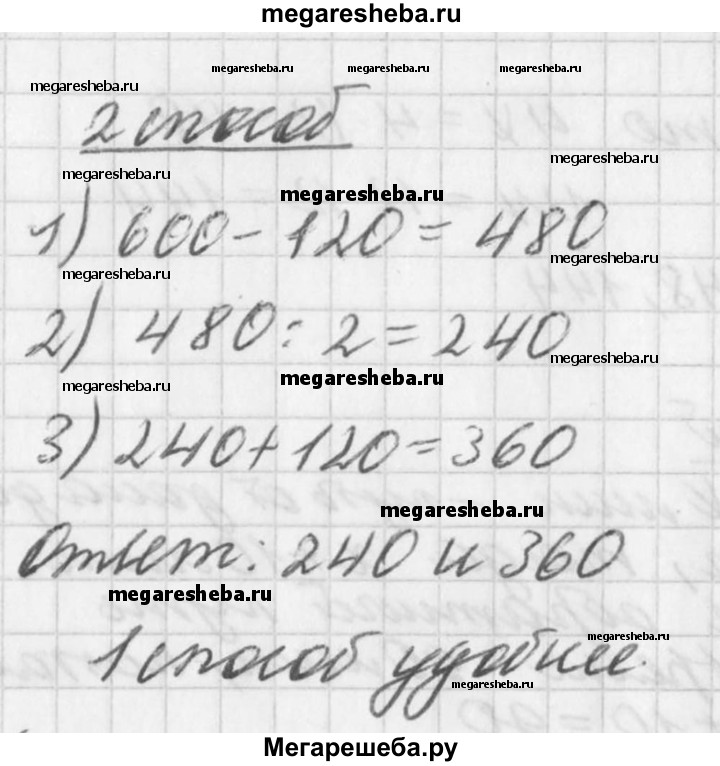 megaresheba.ru
megaresheba.ru megaresheba.ru megaresheba.ru
megaresheba.ru
2 способ
megaresheba.ru
megaresheba.ru
megaresheba.ru
1) 600 - 120 = 480
megaresheba.ru
megaresheba.ru
2) 480 : 2 = 240
megaresheba.ru
megaresheba.ru
megaresheba.ru
3) 240 + 120 = 360
megaresheba.ru
Ответ: 240 и 360
megaresheba.ru
megaresheba.ru
1 способ удобнее.
megaresheba.ru
Мегарешеба.ру